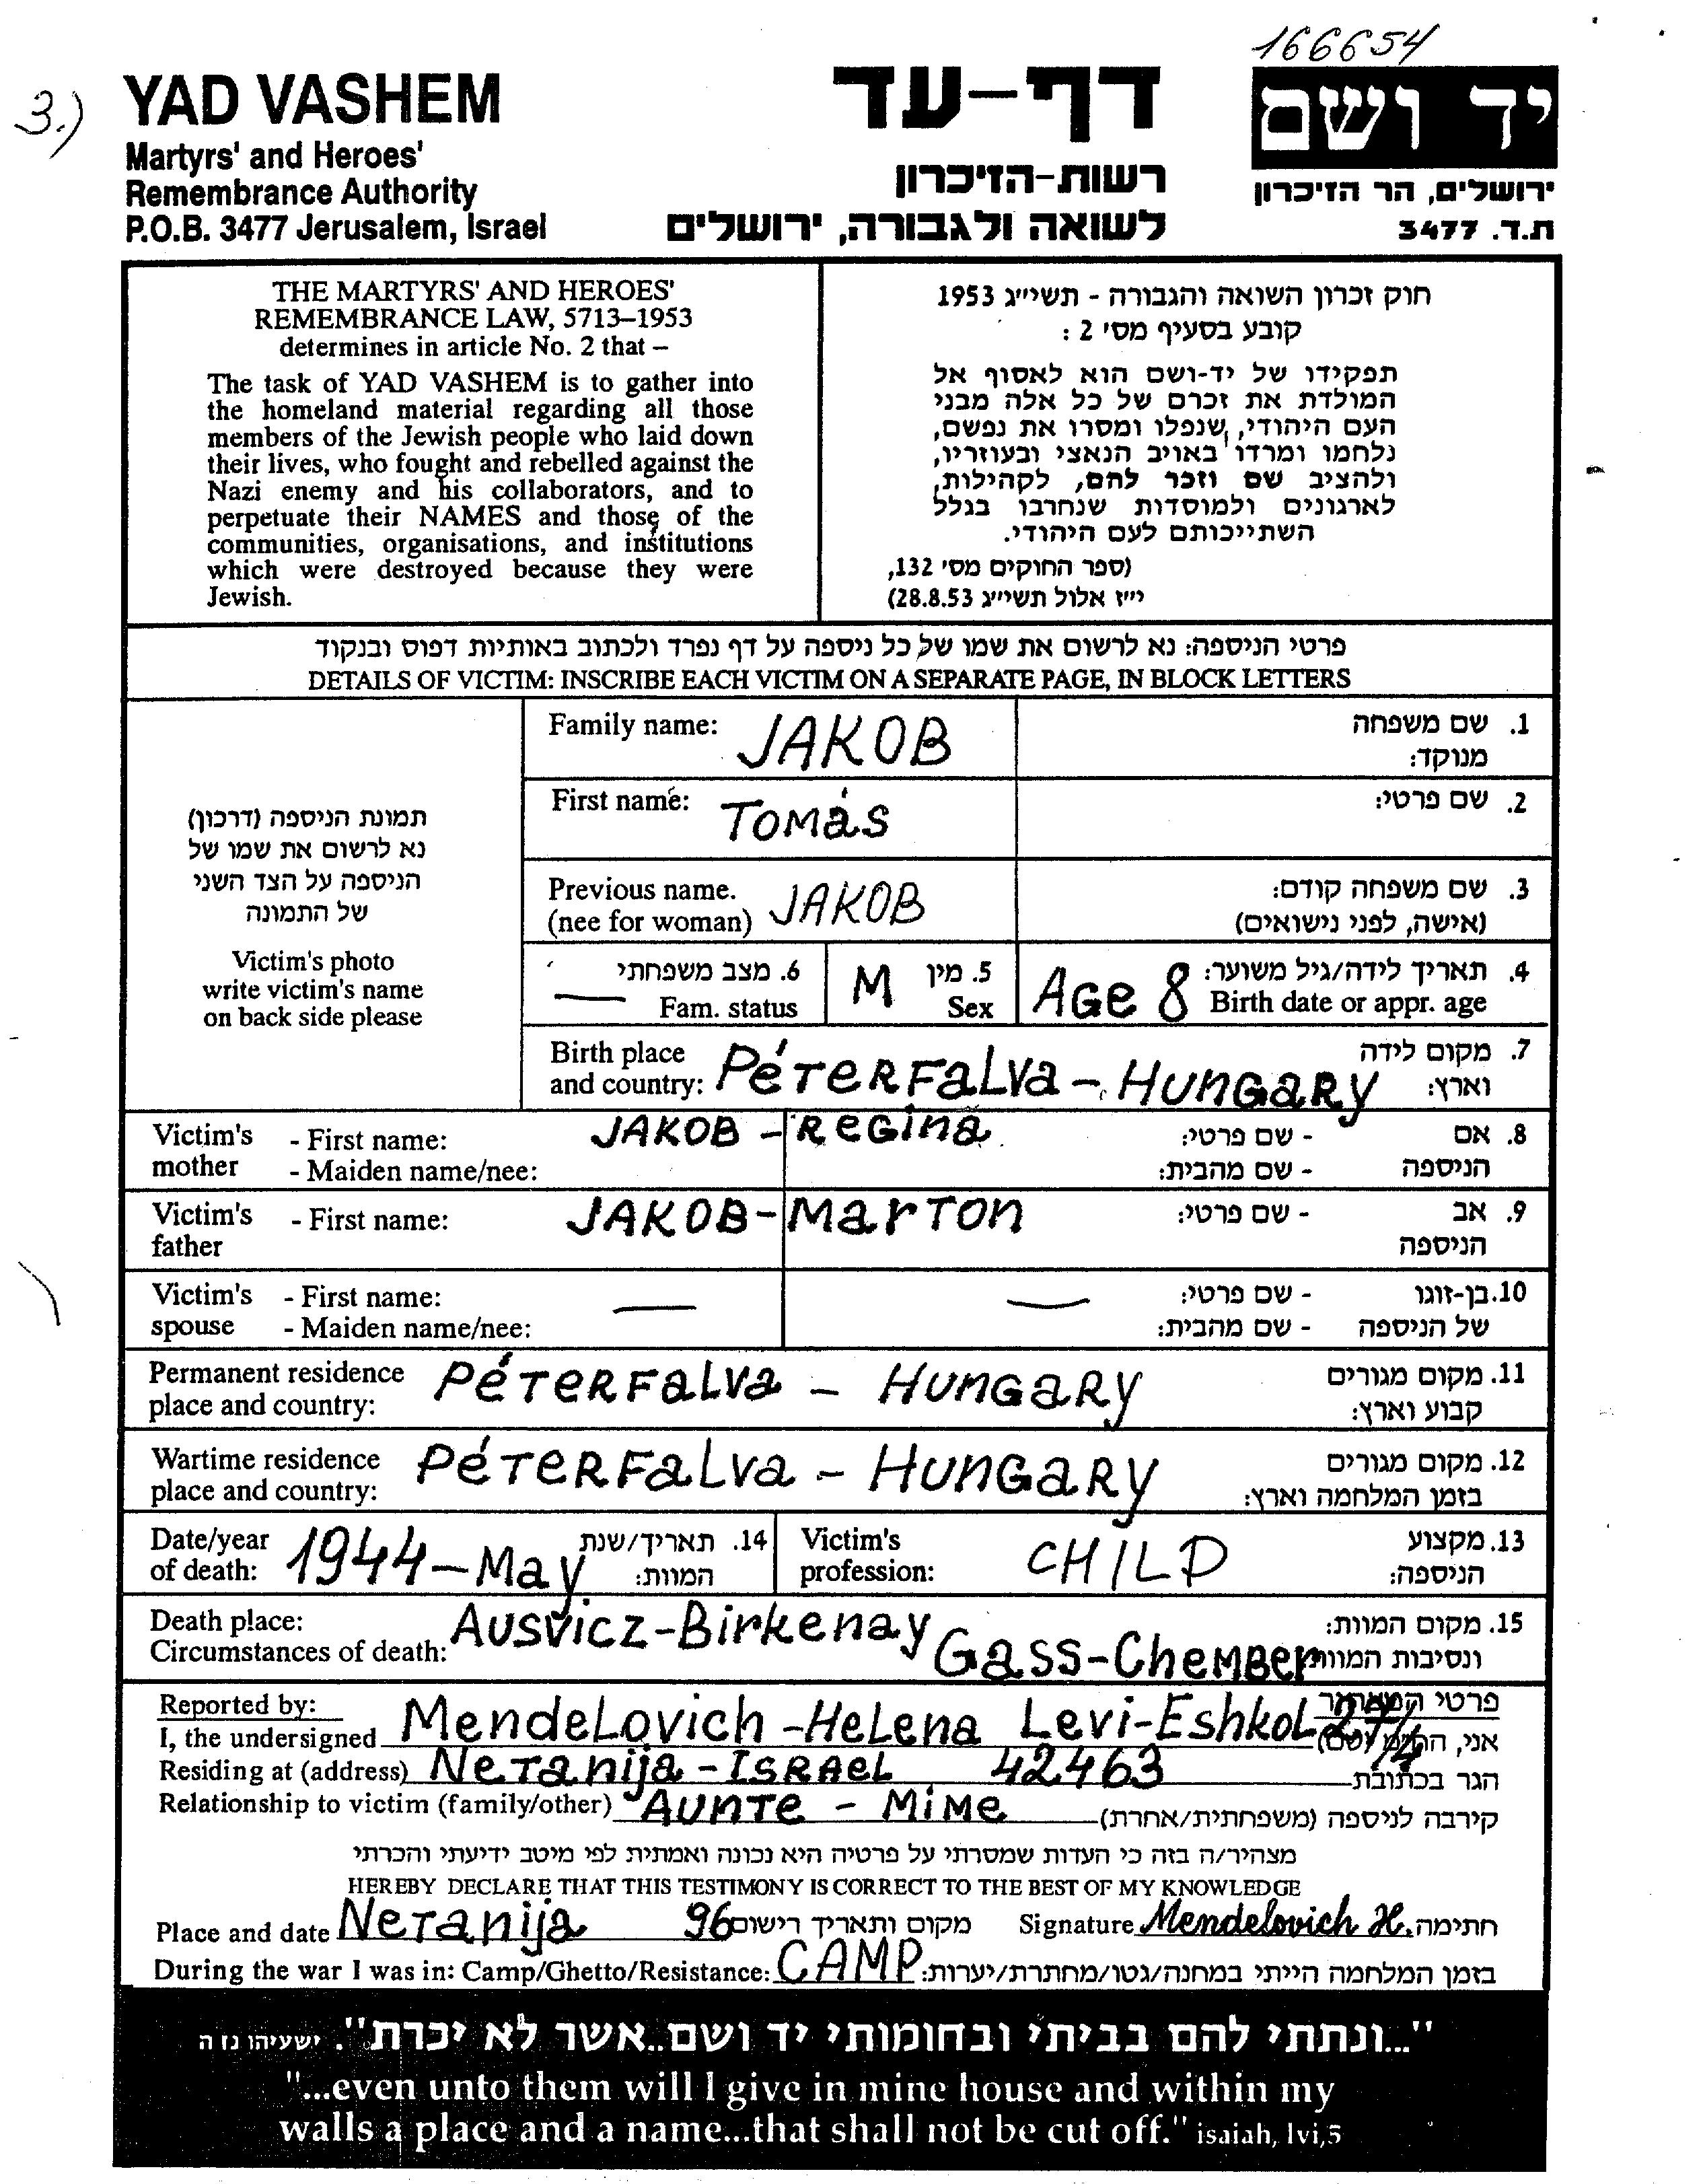 166654
3.)
YAD VASHEM
Martyrs' and Heroes'
Remembrance Authority
P.O.B. 3477 Jerusalem, Israel
דף-עד
רשות-הזיכרון
לשואה ולגבורה, ירושלים
יד ושם
ירושלים, הר הזיכרון
ת.ד. 3477
THE MARTYRS' AND HEROES'
REMEMBRANCE LAW, 5713–1953
determines in article No. 2 that –
The task of YAD VASHEM is to gather into
the homeland material regarding all those
members of the Jewish people who laid down
their lives, who fought and rebelled against the
Nazi enemy and his collaborators, and to
perpetuate their NAMES and those of the
communities, organisations, and institutions
which were destroyed because they were
Jewish.
חוק זכרון השואה והגבורה - תשי״ג 1953
קובע בסעיף מס׳ 2 :
תפקידו של יד-ושם הוא לאסוף אל
המולדת את זכרם של כל אלה מבני
העם היהודי, שנפלו ומסרו את נפשם,
נלחמו ומרדו באויב הנאצי ובעוזריו,
ולהציב שם וזכר להם, לקהילות,
לארגונים ולמוסדות שנחרבו בגלל
השתייכותם לעם היהודי.
(ספר החוקים מס׳ 132,
י״ז אלול תשי״ג 28.8.53)
פרטי הניספה: נא לרשום את שמו של כל ניספה על דף נפרד ולכתוב באותיות דפוס ובנקוד
DETAILS OF VICTIM: INSCRIBE EACH VICTIM ON A SEPARATE PAGE, IN BLOCK LETTERS
תמונת הניספה (דרכון)
נא לרשום את שמו של
הניספה על הצד השני
של התמונה
Victim's photo
write victim's name
on back side please
Family name: JAKOB 1. שם משפחה
מנוקד:
First name: TOMáS 2. שם פרטי:
Previous name. JAKOB 3. שם משפחה קודם:
(nee for woman) (אישה, לפני נישואים)
— 6. מצב משפחתי
Fam. status
M 5. מין
Sex
AGe 8 4. תאריך לידה/גיל משוער:
Birth date or appr. age
Birth place PéTERFaLVa – HUnGaRy 7. מקום לידה
and country: וארץ:
Victim's - First name: JAKOB - ReGina - שם פרטי: 8. אם
mother - Maiden name/nee: - שם מהבית: הניספה
Victim's - First name: JAKOB- MarTon - שם פרטי: 9. אב
father הניספה
Victim's - First name: — — - שם פרטי: 10. בן-זוגו
spouse - Maiden name/nee: - שם מהבית: של הניספה
Permanent residence PéTERFaLVa – HUnGaRy 11. מקום מגורים
place and country: קבוע וארץ:
Wartime residence PéTERFaLVa – HUnGaRy 12. מקום מגורים
place and country: בזמן המלחמה וארץ:
Date/year 1944-May 14. תאריך/שנת
of death: המוות:
Victim's CHILD 13. מקצוע
profession: הניספה:
Death place: AUSVicZ-Birkenay 15. מקום המוות:
Circumstances of death: GaSS-CheMBer ונסיבות המוות
Reported by: פרטי
I, the undersigned MendeLovich -HeLena Levi-EshkoL 27/4 אני,
Residing at (address) NeTanija - ISRAeL 42463 הגר בכתובת
Relationship to victim (family/other) AUnTe - MiMe קירבה לניספה (משפחתית/אחרת)
מצהיר/ה בזה כי העדות שמסרתי על פרטיה היא נכונה ואמתית לפי מיטב ידיעתי והכרתי
HEREBY DECLARE THAT THIS TESTIMONY IS CORRECT TO THE BEST OF MY KNOWLEDGE
Place and date NeTanija 96 מקום ותאריך רישום Signature Mendelovich H. חתימה
During the war I was in: Camp/Ghetto/Resistance: CAMP בזמן המלחמה הייתי במחנה/גטו/מחתרת/יערות:
"...ונתתי להם בביתי ובחומותי יד ושם..אשר לא יכרת". ישעיהו נז ה
"...even unto them will I give in mine house and within my
walls a place and a name...that shall not be cut off." isaiah, lvi,5